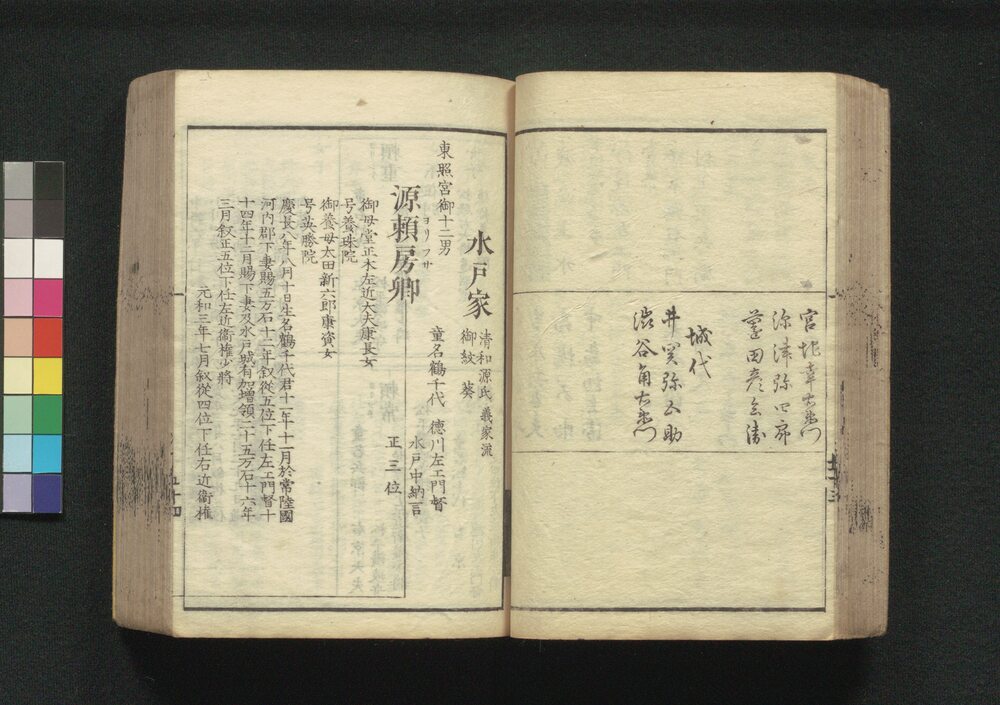 宮地幸右衛門
弥津弥四郎
城代
井関弥五助
渋谷角右衛門
水戸家
清和源氏 義家流
御紋 葵
東照宮御十二男
童名鶴千代 徳川左エ門督
水戸中納言
源頼房卿
ヨリフサ
正三位
御母堂正木左近大夫康長女
号養珠院
御養母太田新六郎康資女
号英勝院
慶長八年八月十日生名鶴千代君十一年十一月於常陸國
河内郡下妻賜五万石十二年叙從五位下任左エ門督十
十四年十二月賜下妻及水戸城有加増領二十五万石十六年
三月叙正五位下任左近衛權少将
元和三年七月叙從四位下任右近衛權
五十四